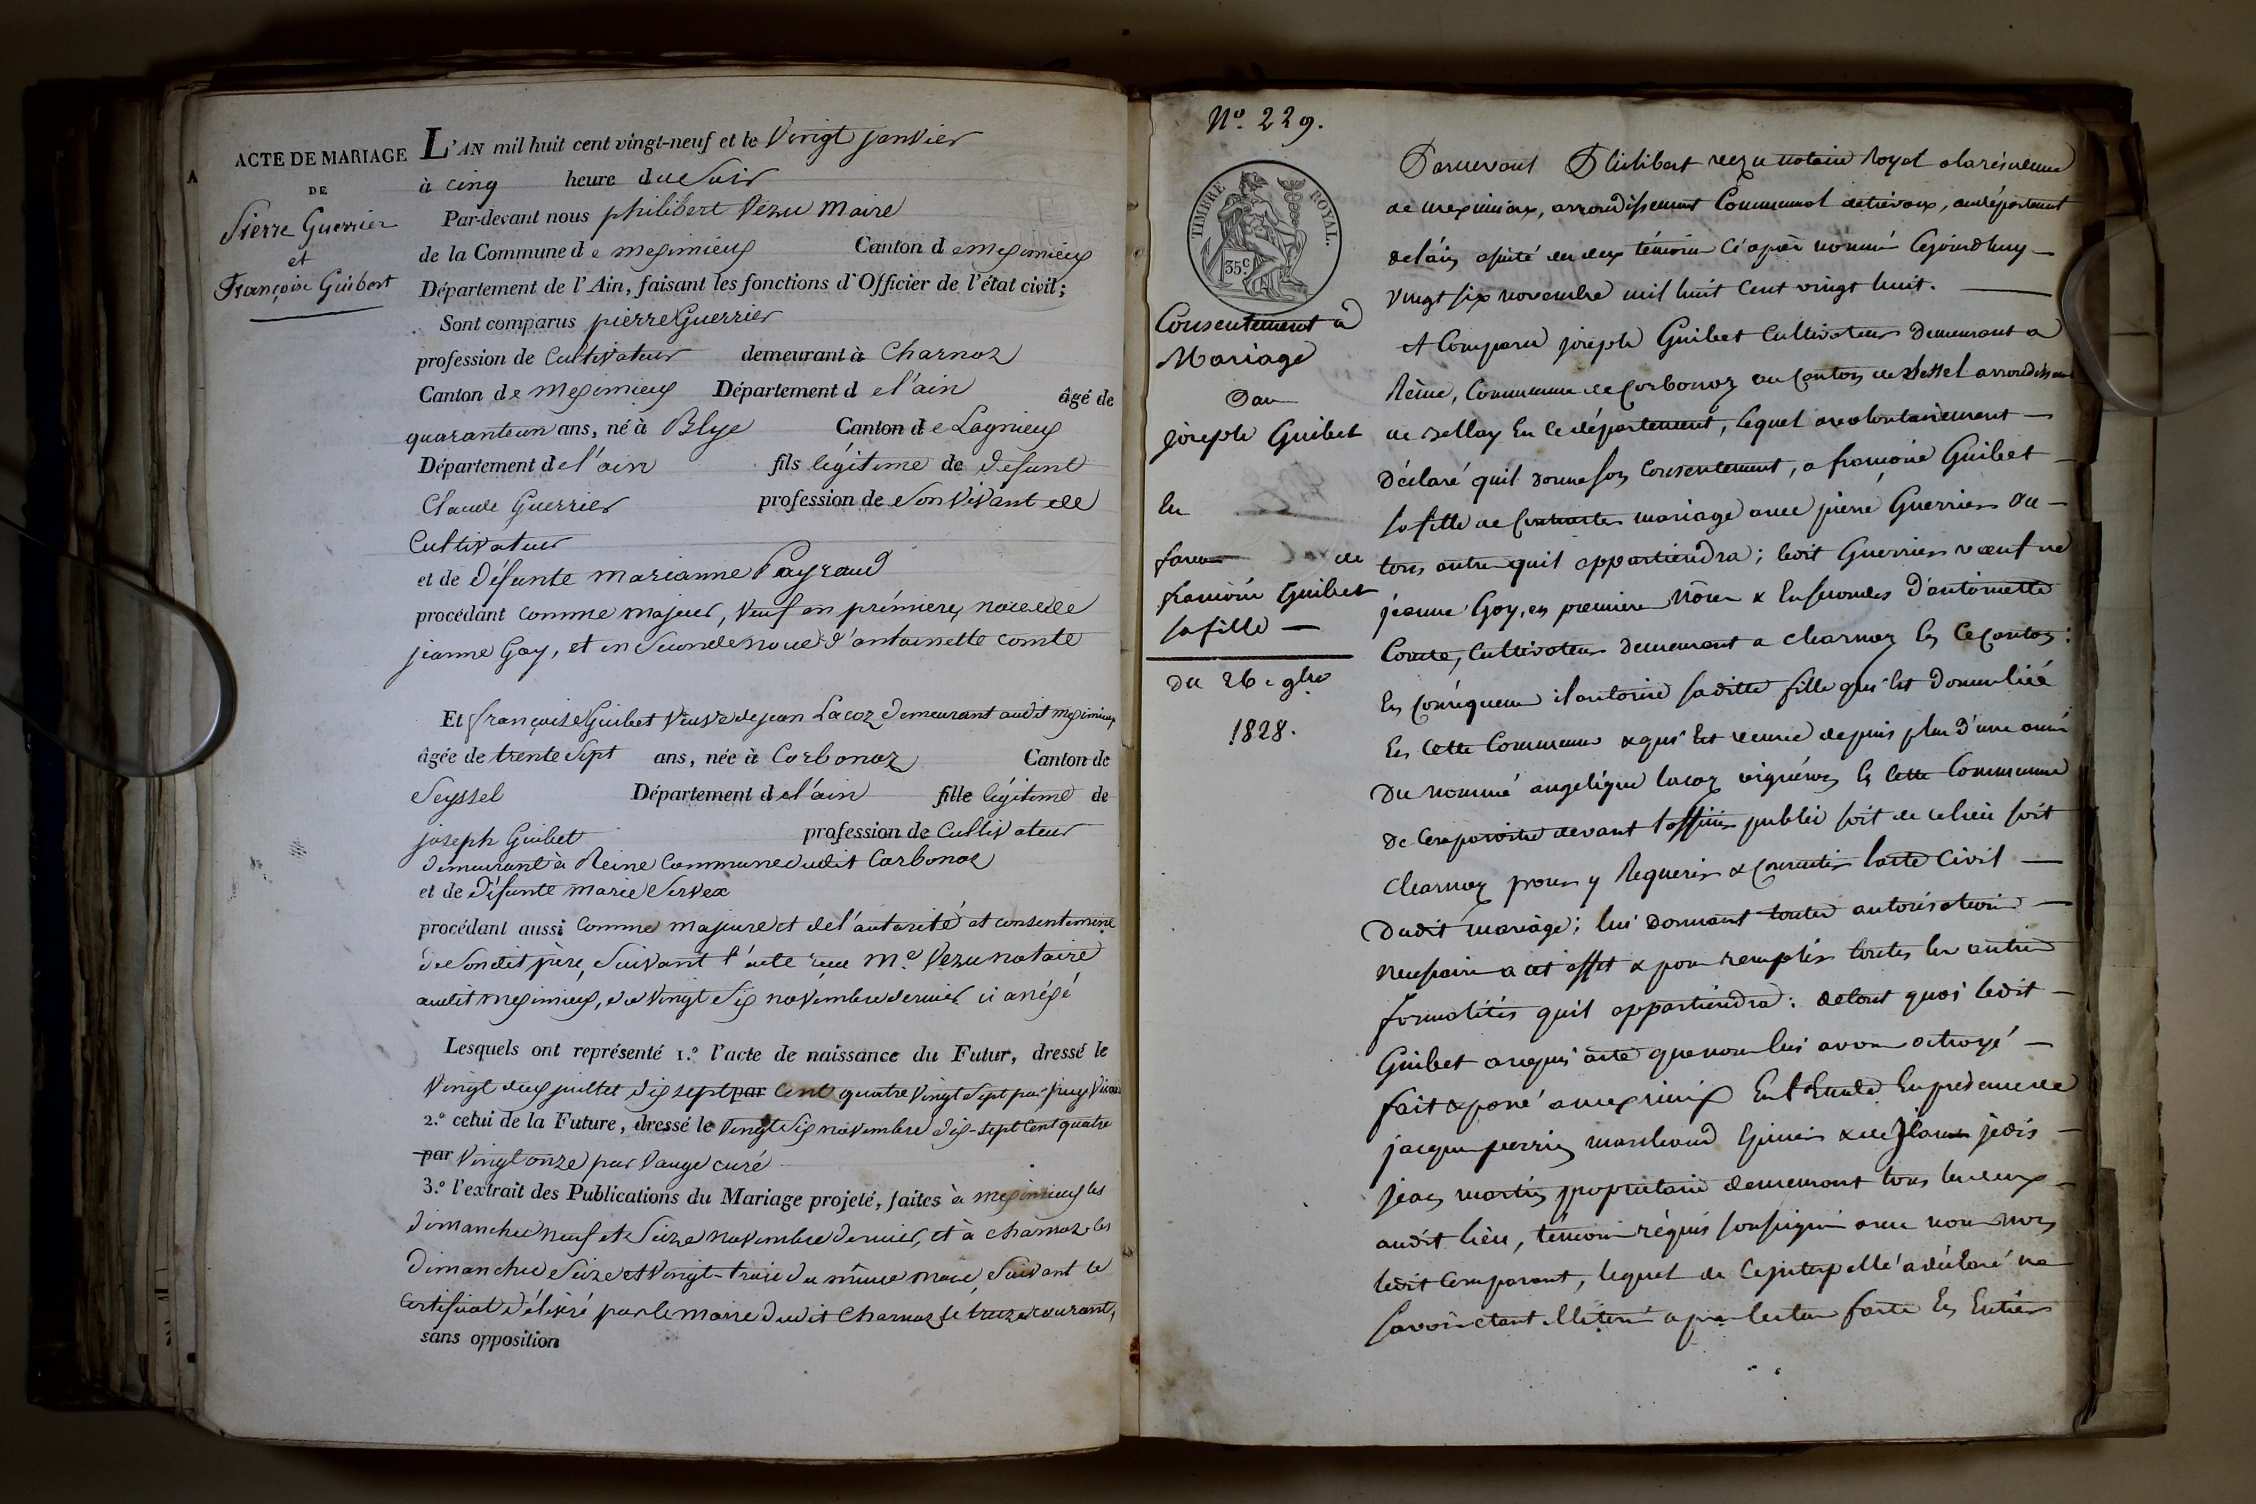 ACTE DE MARIAGE
DE
Pierre Guerrier
et
Françoise Guibert
L'AN mil huit cent vingt-neuf et le Vingt janvier
à cinq heure du Soir
Par-devant nous philibert Vezu Maire
de la Commune de meximieux Canton de meximieux
Département de l'Ain, faisant les fonctions d'Officier de l'état civil;
Sont comparus pierre Guerrier
profession de Cultivateur demeurant à Charnoz
Canton de Meximieux Département de l'ain âgé de
quaranteun ans, né à Blye Canton de Lagnieux
Département de l'ain fils légitime de défunt
Claude Guerrier profession de Son Vivant de
Cultivateur
et de défunte marianne Payraud
procédant comme majeur, Veuf en premiere noce de
jeanne Goy, et en Seconde noce d'antoinette comte
Et françoise Guibet Veuve de jean Lacoz demeurant audit meximieux
âgée de trente Sept ans, née à Corbonoz Canton de
Seyssel Département de l'ain fille légitime de
joseph Guibet profession de Cultivateur
demeurant à Reine Commune dudit Corbonoz
et de défunte marie Servex
procédant aussi Comme majeure et de l'autorité et consentement
de Sondit père, Suivant l'acte reçu Me. Vezu notaire
audit meximieux, le Vingt Six novembre dernier ci anéxé
Lesquels ont représenté 1.º l'acte de naissance du Futur, dressé le
Vingt deux juillet dix sept par Cent quatre Vingt Sept par
2.º celui de la Future, dressé le Vingt Six novembre dix-sept Cent quatre
par Vingt onze par Vauge curé
3.º l'extrait des Publications du Mariage projeté, faites à meximieux les
dimanches neuf et Seize novembre dernier, et à charnoz les
dimanches Seize et Vingt-trois du même mois Suivant le
Certificat délivré par le maire dudit Charnoz le treize courant,
sans opposition
Nº. 229.
TIMBRE ROYAL.
35c
Consentement à
Mariage
Par
joseph Guibet
En
faveur de
françoise Guibet
sa fille
Du 26. 9bre
1828.
Pardevant Philibert vezu notaire Royal a la résidence
de meximieux, arrondissement Communal de trevoux, département
de l'ain, assisté des deux témoins ci après nommés Cejourdhuy
vingt six novembre mil huit Cent vingt huit.
A Comparu joseph Guibet Cultivateur demeurant a
Reine, Commune de Corbonoz au Canton de Sessel arrondissement
de Bellay En ce département, lequel a volontairement
déclaré quil donne son Consentement, a françoise Guibet
sa fille de Contracter mariage avec pierre Guerrier ou
tous autre quil appartiendra; ledit Guerrier veuf de
jeanne Goy, en premiere Nôce & En secondes d'antoinette
Comte, Cultivateur demeurant a charnoz En ce Canton:
En conséquence il autorise saditte fille qui Est domiciliée
En Cette Commune & qui Est veuve depuis plus d'une année
Du nommé angelique lacoz vigneron En Cette Commune
De Comparoitre devant l'officier public soit de ce lieu soit
Charnoz pour y Requerir & Consentir l'acte Civil
Dudit mariage; lui donnant toutes autorisations
necessaire a cet effet & pour remplir toutes les autres
formalités quil appartiendra: de tout quoi ledit
Guibet a requis acte que nous lui avons octroyé
fait & passé a meximieux En l'Etude En présence de
jacques perrin marchand Epicier & de jedis
jean martin propriétaire demeurant tous les deux
audit lieu, témoins réquis soussignés avec nous non
ledit Comparant, lequel de Ce interpellé a déclaré ne
savoir étant illitéré après lecture faite En Entier